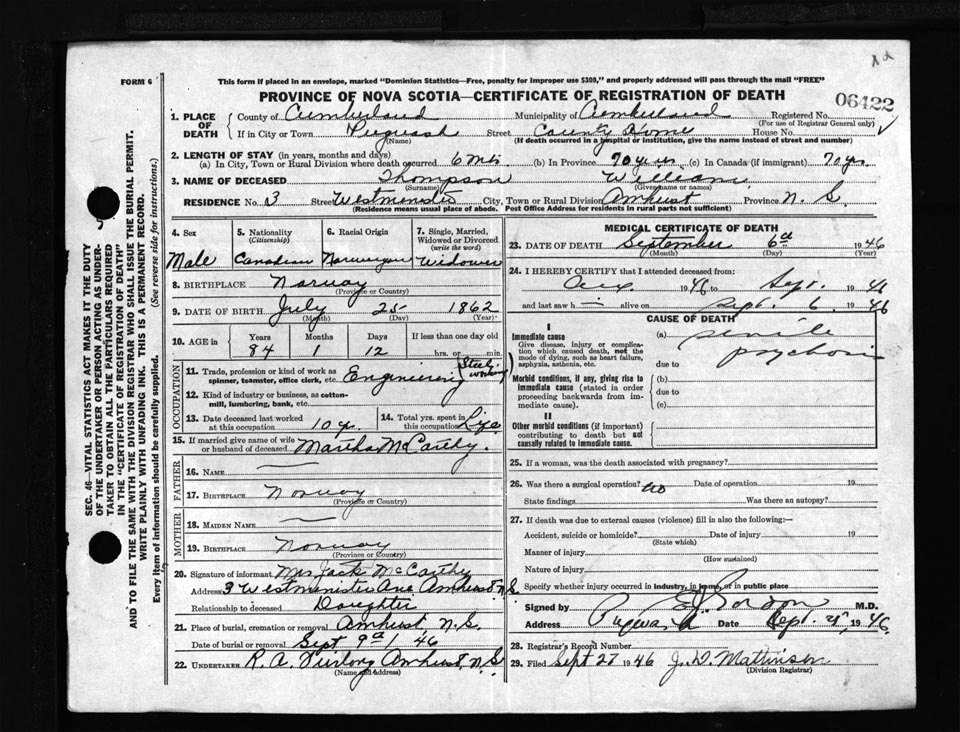 FORM 6
This form if placed in an envelope, marked "Dominion Statistics—Free, penalty for improper use $300," and properly addressed will pass through the mail "FREE"
PROVINCE OF NOVA SCOTIA—CERTIFICATE OF REGISTRATION OF DEATH
06422
1. PLACE OF DEATH County of Cumberland Municipality of Cumberland Registered No.
(For use of Registrar General only)
If in City or Town Pugwash Street County Home House No.
(Name) (If death occurred in a hospital or institution, give the name instead of street and number)
2. LENGTH OF STAY (in years, months and days)
(a) In City, Town or Rural Division where death occurred 6 mts (b) In Province 70 years (c) In Canada (if immigrant) 70 yrs
3. NAME OF DECEASED Thompson William
(Surname) (Given name or names)
RESIDENCE No. 3 Street Westminister City, Town or Rural Division Amherst Province N. S.
(Residence means usual place of abode. Post Office Address for residents in rural parts not sufficient)
4. Sex 5. Nationality (Citizenship) 6. Racial Origin 7. Single, Married, Widowed or Divorced (write the word)
Male Canadian Norwegian Widower
8. BIRTHPLACE Norway
(Province or Country)
9. DATE OF BIRTH July 25 1862
(Month) (Day) (Year)
10. AGE in Years Months Days If less than one day old
84 1 12 hrs. or min.
OCCUPATION
11. Trade, profession or kind of work as spinner, teamster, office clerk, etc. Engineering (Steel working)
12. Kind of industry or business, as cotton-mill, lumbering, bank, etc.
13. Date deceased last worked at this occupation 10 yr. 14. Total yrs. spent in this occupation Life
15. If married give name of wife or husband of deceased Martha McCarthy.
FATHER
16. NAME —
17. BIRTHPLACE Norway
(Province or Country)
MOTHER
18. MAIDEN NAME —
19. BIRTHPLACE Norway
(Province or Country)
20. Signature of informant Mrs Jack McCarthy
Address 3 Westminister Ave Amherst N.S
Relationship to deceased Daughter
21. Place of burial, cremation or removal Amherst N.S.
Date of burial or removal Sept 9th / 46
22. UNDERTAKER R. A. Furlong Amherst, N.S
(Name and address)
MEDICAL CERTIFICATE OF DEATH
23. DATE OF DEATH September 6th 1946
(Month) (Day) (Year)
24. I HEREBY CERTIFY that I attended deceased from:
Aug 1946 to Sept. 1946
and last saw h — alive on Sept. 6 1946
CAUSE OF DEATH
I
Immediate cause (a) senile psychosis
Give disease, injury or complication which caused death, not the mode of dying, such as heart failure, asphyxia, asthenia, etc. due to
Morbid conditions, if any, giving rise to immediate cause (stated in order proceeding backwards from immediate cause). (b)
due to
(c)
II
Other morbid conditions (if important) contributing to death but not causally related to immediate cause.
25. If a woman, was the death associated with pregnancy?
26. Was there a surgical operation? no Date of operation 19
State findings Was there an autopsy?
27. If death was due to external causes (violence) fill in also the following:—
Accident, suicide or homicide? Date of injury 19
(State which)
Manner of injury
(How sustained)
Nature of injury
Specify whether injury occurred in industry, in home, or in public place
Signed by Gordon M.D.
Address Pugwash Date Sept. 1946
28. Registrar's Record Number
29. Filed Sept 27 1946 J. D. Mattinson
(Division Registrar)
SEC. 46—VITAL STATISTICS ACT MAKES IT THE DUTY
OF THE UNDERTAKER OR PERSON ACTING AS UNDER-
TAKER TO OBTAIN ALL THE PARTICULARS REQUIRED
IN THE "CERTIFICATE OF REGISTRATION OF DEATH"
AND TO FILE THE SAME WITH THE DIVISION REGISTRAR WHO SHALL ISSUE THE BURIAL PERMIT.
WRITE PLAINLY WITH UNFADING INK. THIS IS A PERMANENT RECORD.
Every item of Information should be carefully supplied. (See reverse side for instructions.)